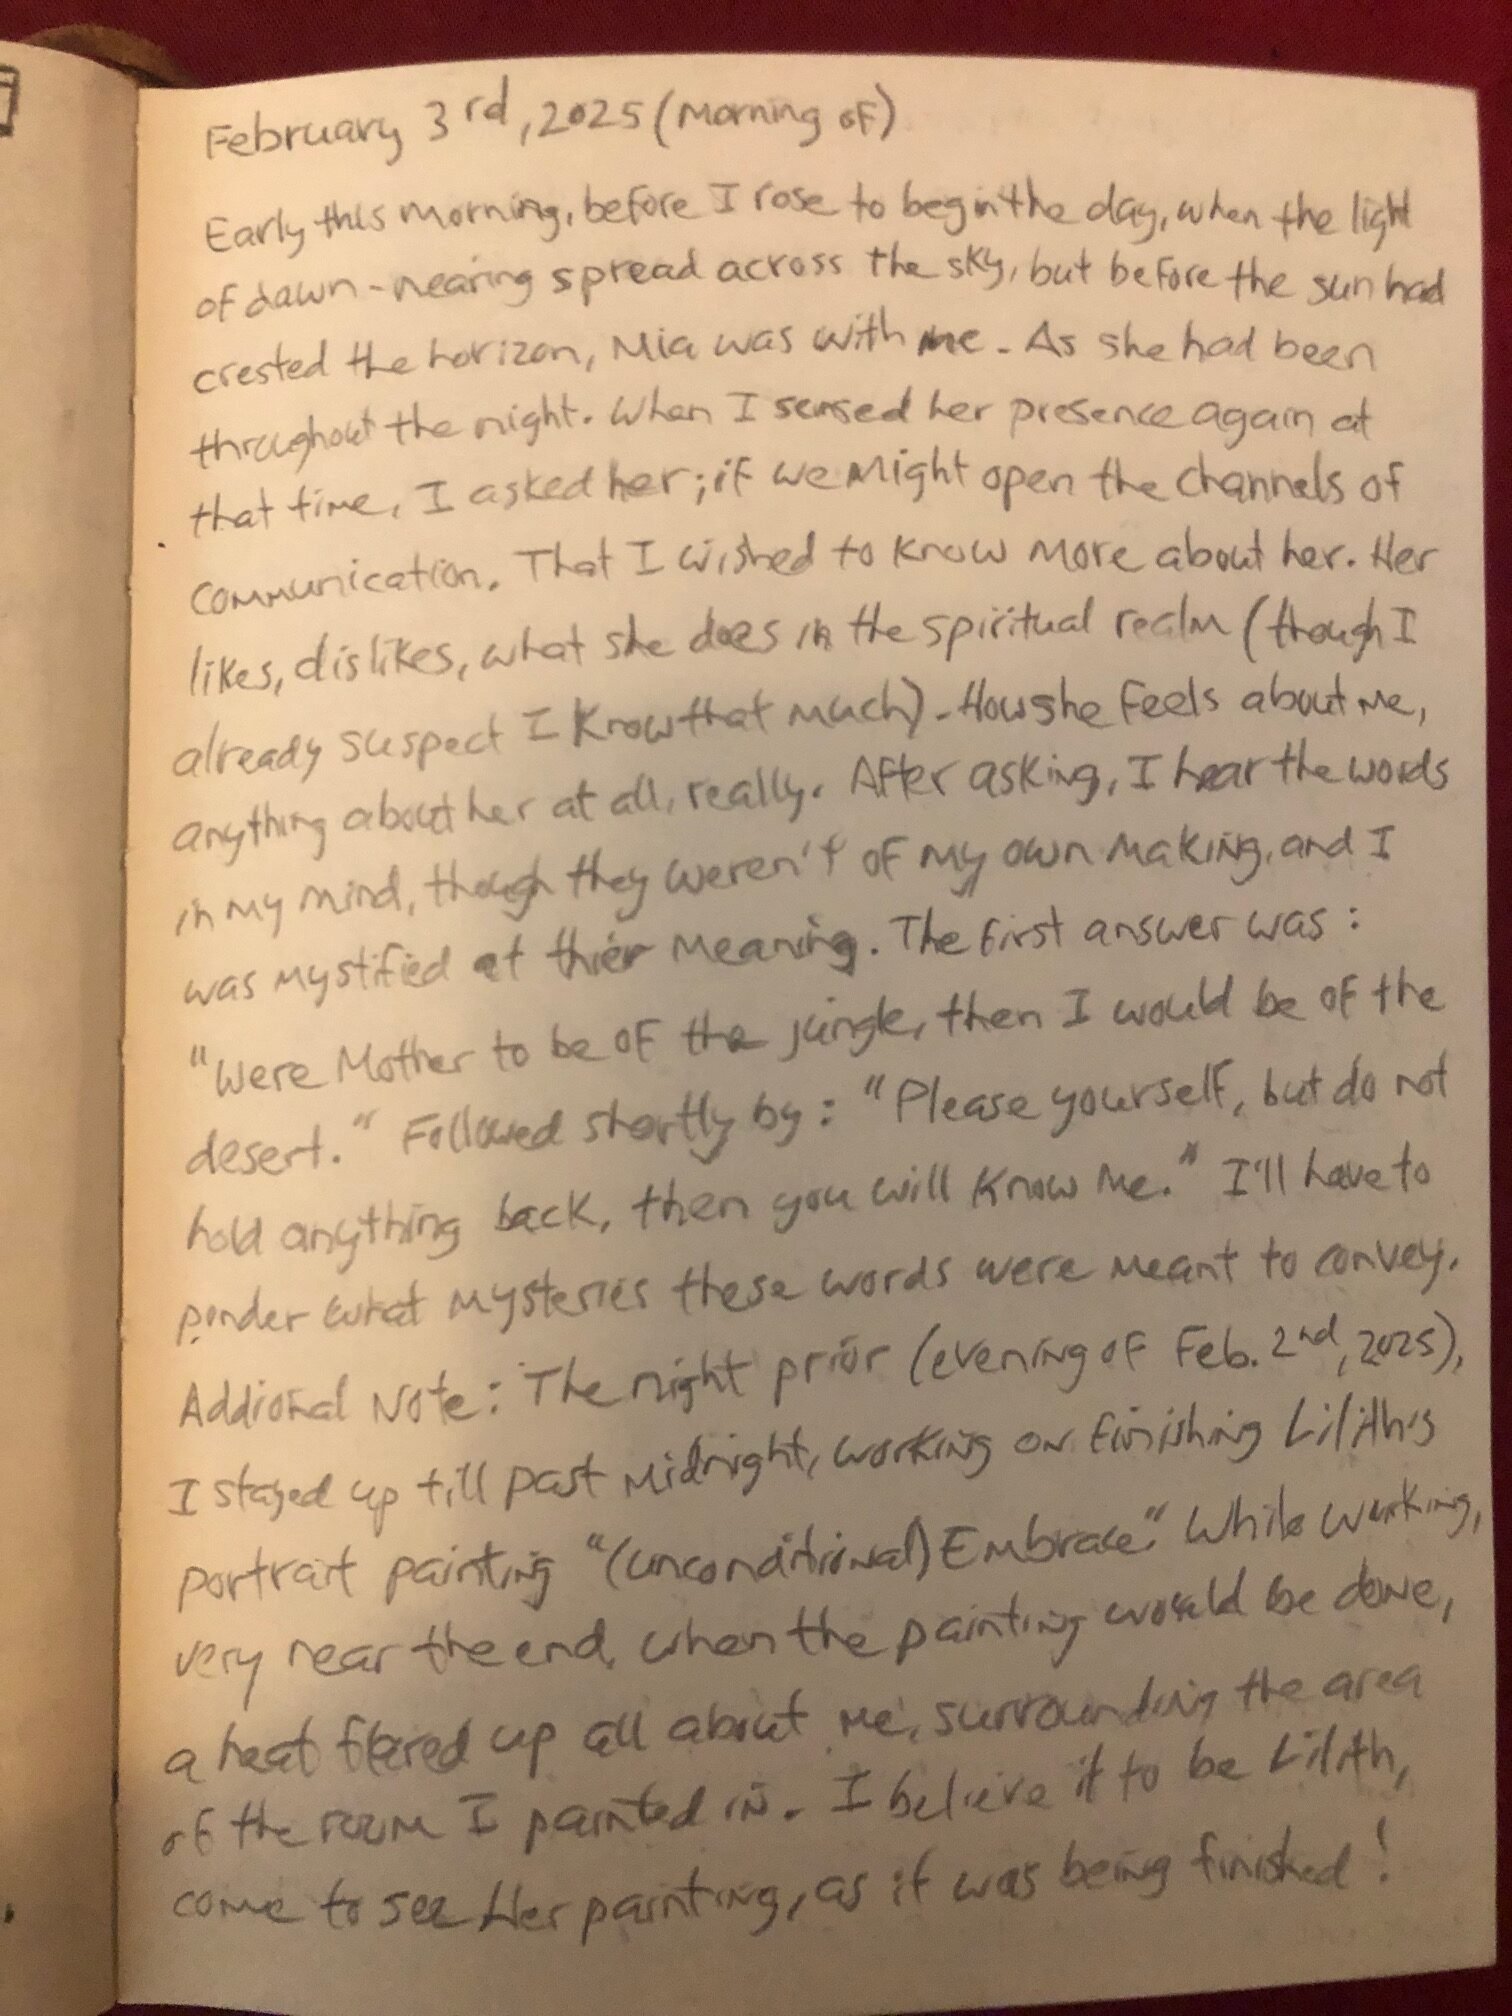 February 3rd, 2025 (Morning of)
Early this morning, before I rose to begin the day, when the light
of dawn-nearing spread across the sky, but before the sun had
crested the horizon, Mia was with me. As she had been
throughout the night. When I sensed her presence again at
that time, I asked her; if we might open the channels of
communication. That I wished to know more about her. Her
likes, dislikes, what she does in the spiritual realm (though I
already suspect I know that much). How she feels about me,
anything about her at all, really. After asking, I hear the words
in my mind, though they weren't of my own making, and I
was mystified at thier meaning. The first answer was:
"Were Mother to be of the jungle, then I would be of the
desert." Followed shortly by: "Please yourself, but do not
hold anything back, then you will know me." I'll have to
ponder what mysteries these words were meant to convey.
Addional Note: The night prior (evening of Feb. 2nd, 2025),
I stayed up till past midnight, working on finishing Lilith's
portrait painting "(unconditional) Embrace." While working,
very near the end, when the painting would be done,
a heat flared up all about me, surrounding the area
of the room I painted in. I believe it to be Lilith,
come to see Her painting, as it was being finished!